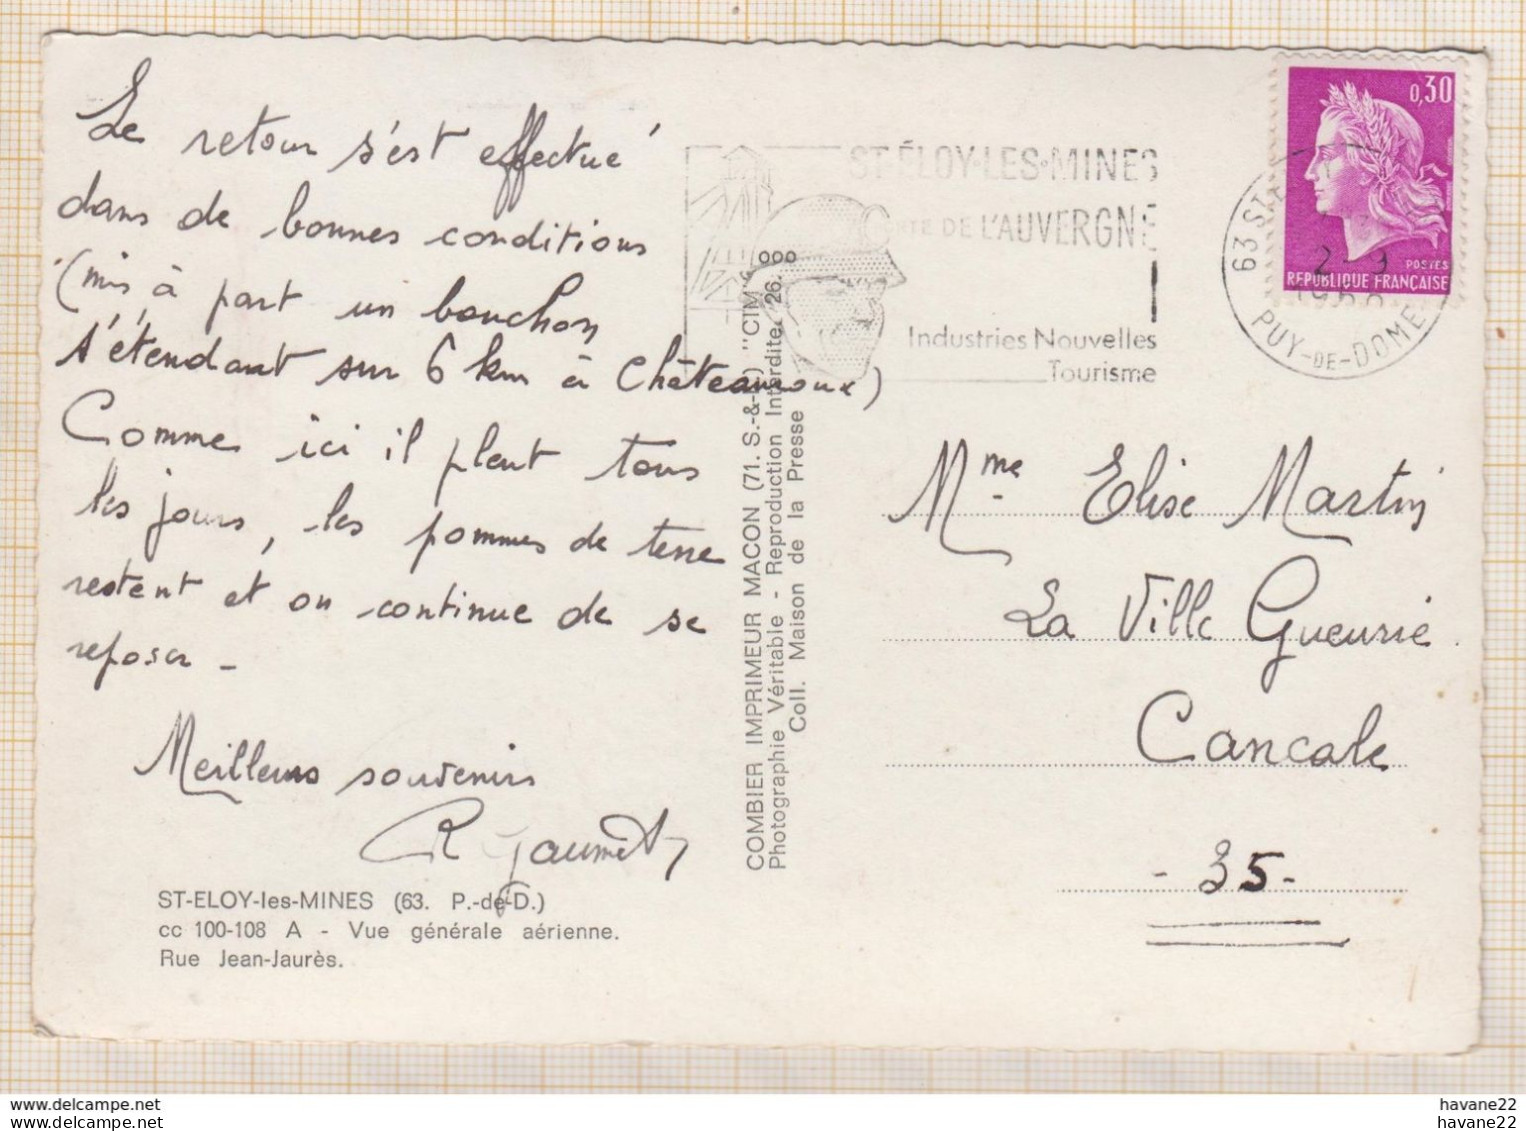 Le retour s'est effectué
dans de bonnes conditions
(mis à part un bouchon
s'étendant sur 6 km à Châteauroux)
Comme ici il pleut tous
les jours, les pommes de terre
restent et on continue de se
reposer -
Meilleurs souvenirs
ST-ELOY-les-MINES (63. P.-de-D.)
cc 100-108 A - Vue générale aérienne.
Rue Jean-Jaurès.
COMBIER IMPRIMEUR MACON (71. S.-&-L.) "CIM"
Photographie Véritable - Reproduction Interdite. 26. 000
Coll. Maison de la Presse
ST-ÉLOY-LES-MINES
DE L'AUVERGNE
Industries Nouvelles
Tourisme
63 ST
2-9
PUY-DE-DOME
0,30
POSTES
REPUBLIQUE FRANÇAISE
Mme Elise Martin
La Ville Gueurie
Cancale
- 35 -
delcampe.net
delcampe.net
havane22
havane22